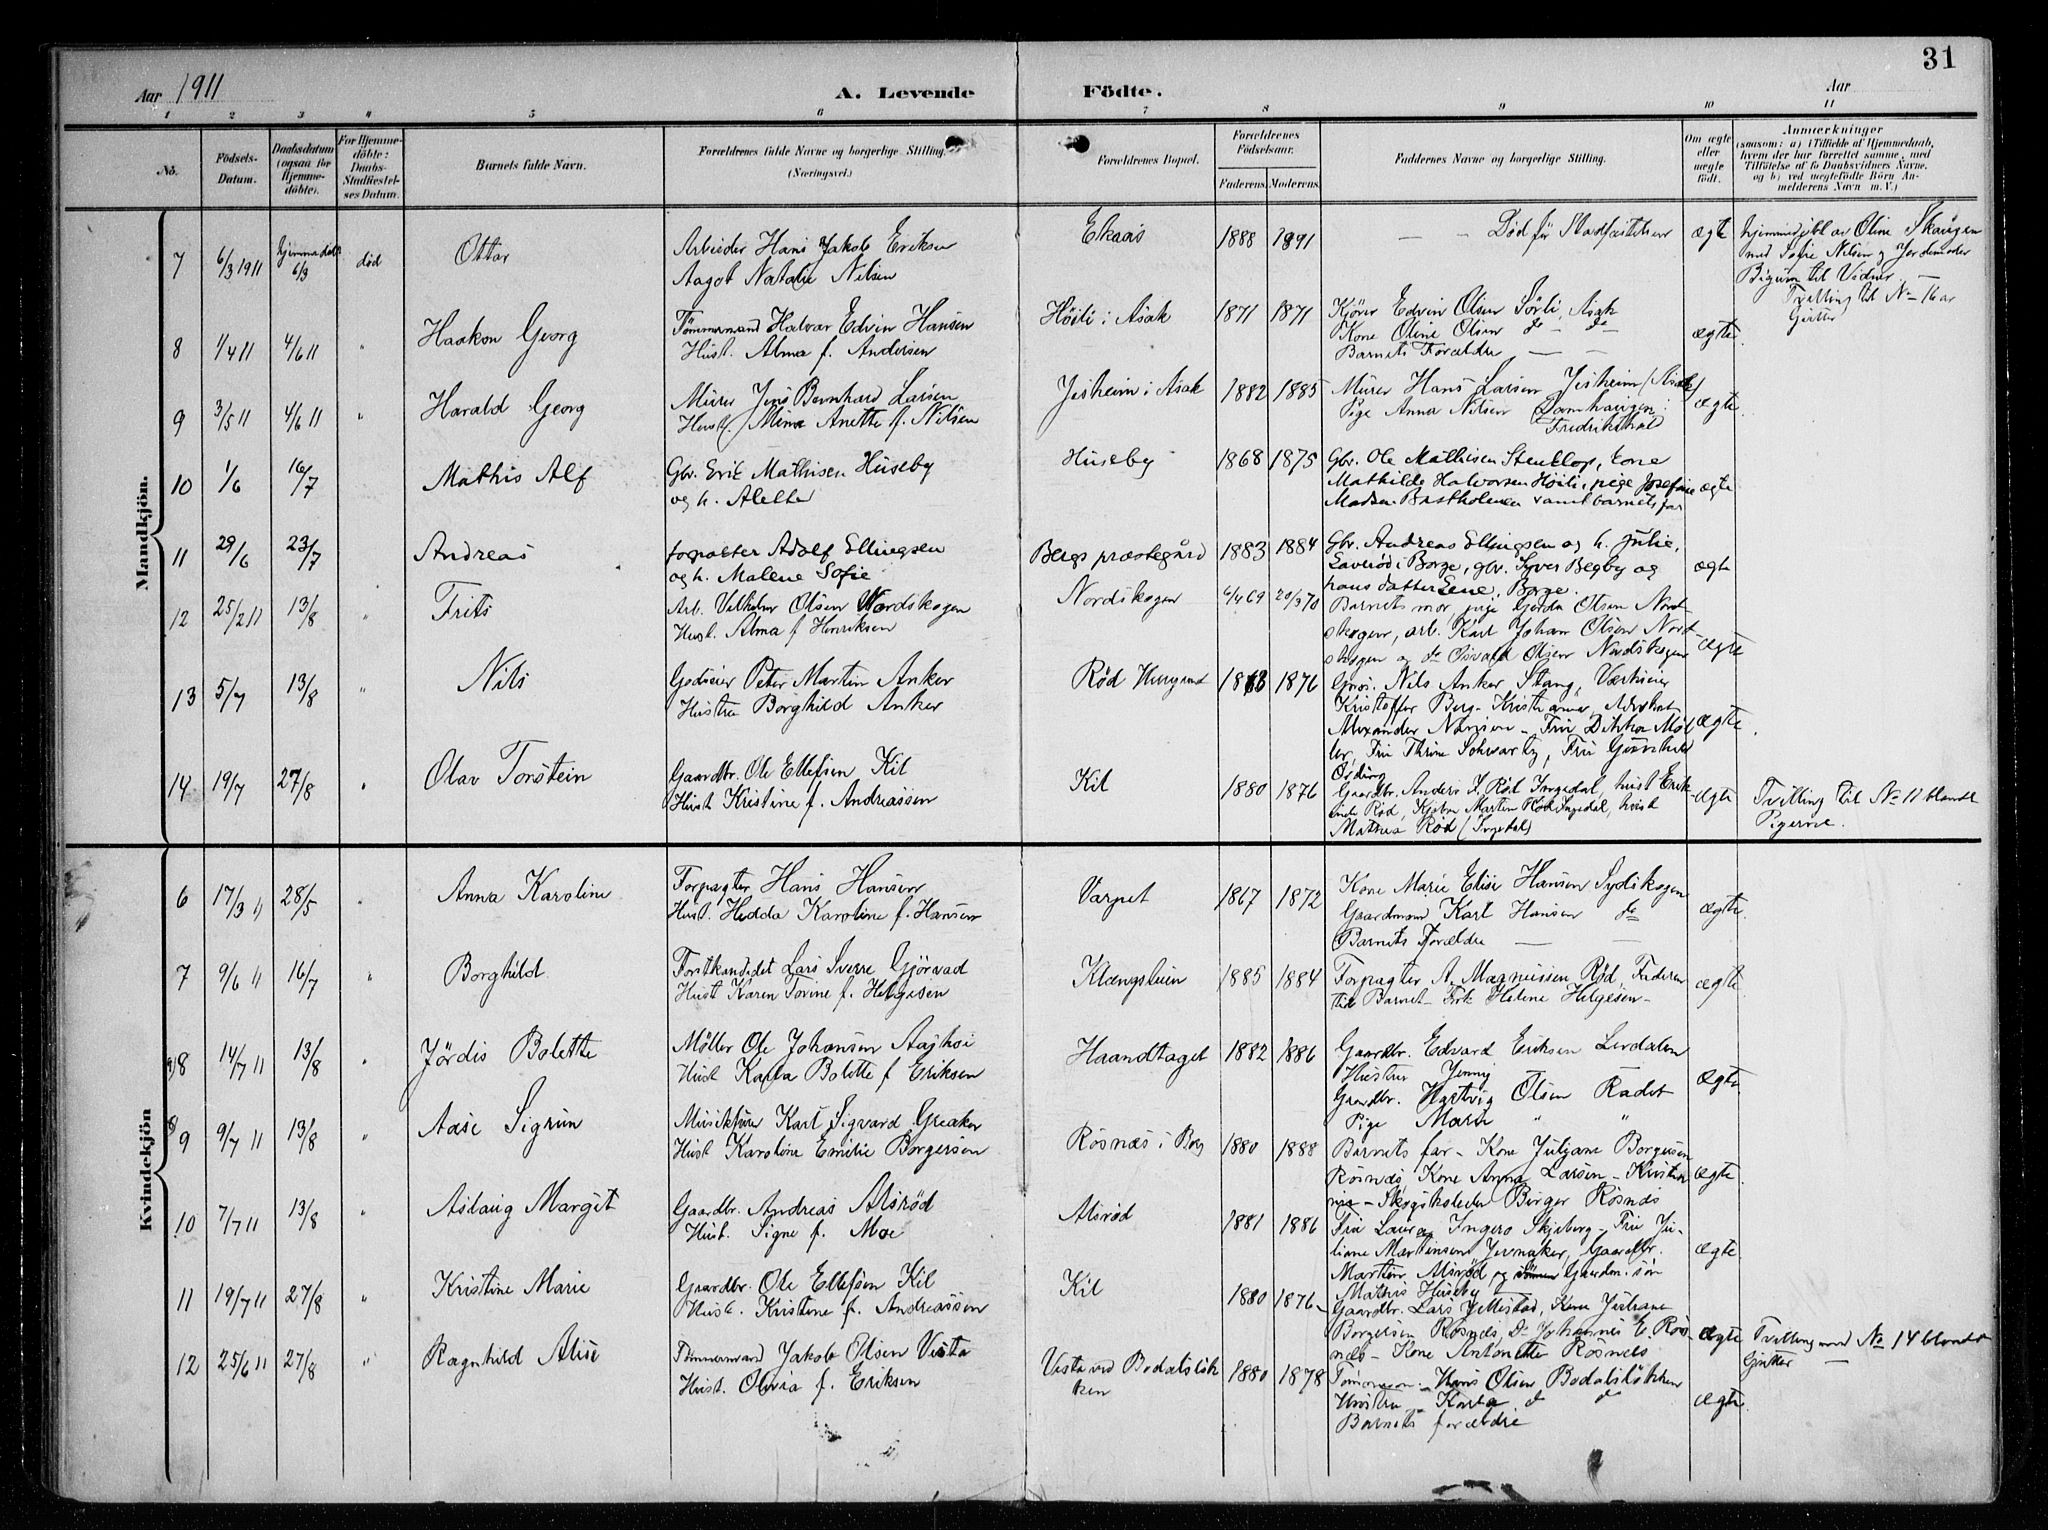 31
Aar 1911
A. Levende Födte.
Aar
1 2 3 4 5 6 7 8 9 10 11
No.
Födsels-Datum.
Daabsdatum (ogsaa for Hjemmedöbte).
For Hjemmedöbte: Daabs-Stadfæstelses Datum.
Barnets fulde Navn.
Forældrenes fulde Navne og borgerlige Stilling. (Næringsvei.)
Forældrenes Bopæl.
Forældrenes Födselsaar. Faderens. Moderens.
Faddernes Navne og borgerlige Stilling.
Om ægte eller uægte födt.
Anmærkninger (saasom: a) i Tilfælde af Hjemmedaab, hvem der har forrettet samme, med Tilföielse af to Daabsvidners Navne, og b) ved uægtefödte Börn Anmelderens Navn m. V.)
Mandkjön.
7 6/3 1911 hjemmedøbt 6/3 død Ottar
Arbeider Hans Jakob Eriksen
Aagot Natalie Nilsen
Ekaas 1888 1891
— — Død før Stadfæstelsen ægte
hjemmedøbt av Oline Skaugen
med Sofie Nilsen og Jordemoder
til Vidner —
Tvilling til No
Gutter
8 1/4 11 4/6 11 " Haakon Georg
Tømmermand Halvar Edvin Hansen
Hust. Alma f. Andersen
Höili i Asak 1871 1871
Kjører Edvin Olsen Sörli, Asak
Kone Oline Olsen do — do
Barnets Forældre — —
ægte
9 3/5 11 4/6 11 " Harald Georg
Murer Jens Bernhard Larsen
Hust. Mina Anette f. Nilsen
i Asak 1882 1885
Murer Hans Larsen (Asak)
Pige Anna Nilsen Damhaugen
Fredrikshald
ægte
10 1/6 16/7 Mathis Alf
Gbr. Erik Mathisen Huseby
og h. Alette
Huseby 1868 1875
Gbr. Ole Mathisen Stentlop, kone
Mathilde Halvorsen Höili, pige Josefine
Madsen Bastholmen samt barnets far
ægte
11 29/6 23/7 Andreas
forpakter Adolf Ellingsen
og h. Malene Sofie
Bergs præstegård 1883 1884
Gbr. Andreas Ellingsen og h. Julie,
i Borge, gbr. Syver Begby og
hans datter Lene, Borge.
ægte
12 25/2 11 13/8 " Frits
Arb. Vilhelm Olsen Nordskogen
Hust. Alma f. Henriksen
Nordskogen 6/4 69 20/3 70
Barnets mor, pige Gerda Olsen Nord-
skogen, arb. Karl Johan Olsen Nord-
skogen og do Osvald Olsen Nordskogen
ægte
13 5/7 13/8 " Nils
Godseier Peter Martin Anker
Hustru Borghild Anker
Rød Herregaard 1863 1876
Nils Anker Stang, Værkseier
Kristoffer Berg - Kristiania, Advokat
Alexander Nansen - Fru Dikka Møl-
ler, Fru Thrine Schwartz, Fru Gunhild
ægte
14 19/7 27/8 " Olav Torstein
Gaardbr. Ole Ellefsen Kil
Hust Kristine f. Andreassen
Kil 1880 1876
Gaardbr. Anders J. Rød Ingedal, hust
Rød, Martin Rød Ingedal, hust
Mathea Rød (Ingedal)
ægte
Tvilling til No 11 blandt
Pigerne.
Kvindekjön
6 17/3 11 28/5 " Anna Karoline
Forpagter Hans Hansen
Hust. Hedda Karoline f. Hansen
Varpet 1867 1872
Kone Marie Elise Hansen Sydskogen
Gaardmand Karl Hansen do
Barnets Forældre — —
ægte
7 9/6 11 16/7 " Borghild
Forstkandidat Lars Sverre Gjörvad
Hust Karen Tovine f. Helgesen
1885 1884
Forpagter A. Magnussen Rød, Faderen
til Barnet - Frk Helene Helgesen -
ægte
8 14/7 11 13/8 " Jördis Bolette
Møller Ole Johansen Aashöi
Hust Karla Bolette f Eriksen
Haandtaget 1882 1886
Gaardbr. Edvard Eriksen Lerdalen
Hustru Jenny
Gaardbr. Hartvig Olsen Rådet
Pige Marie " "
ægte
9 9/7 11 13/8 " Aase Sigrun
Karl Sigvard Greaker
Hust Karoline Emilie Borgersen
Røsnæs i Berg 1880 1888
Barnets far - Kone Juliane Borgersen
Røsnæs, Kone Anna Larsen - Kristia
nia - Birger Røsnæs
ægte
10 7/7 11 13/8 " Aslaug Margit
Gaardbr. Andreas Alsrød
Hust. Signe f. Moe
Alsrød 1881 1886
Fru Laura Ingerø Skjeberg - Fru Ju-
liane Martinsen Jevnaker, Gaardbr.
Martin Alsrød og Gaardm. søn
Mathis Huseby
ægte
11 19/7 11 27/8 " Kristine Marie
Gaardbr. Ole Ellefsen Kil
Hust. Kristine f. Andreassen
Kil 1880 1876
Gaardbr. Lars Kone
Borgersen Røsnæs, Do Johannes E. Røs-
næs - Kone Antonette Røsnæs
ægte
Tvilling med No 14 blandt
Gutter —
12 25/6 11 27/8 " Ragnhild Alise
Tømmermand Jakob Olsen Vesta
Hust. Olivia f. Eriksen
Vesta ved Bødalsløk
ken
1880 1878
Hans Olsen Bødalsløkken
Hustru Karla do do
Barnets forældre
ægte